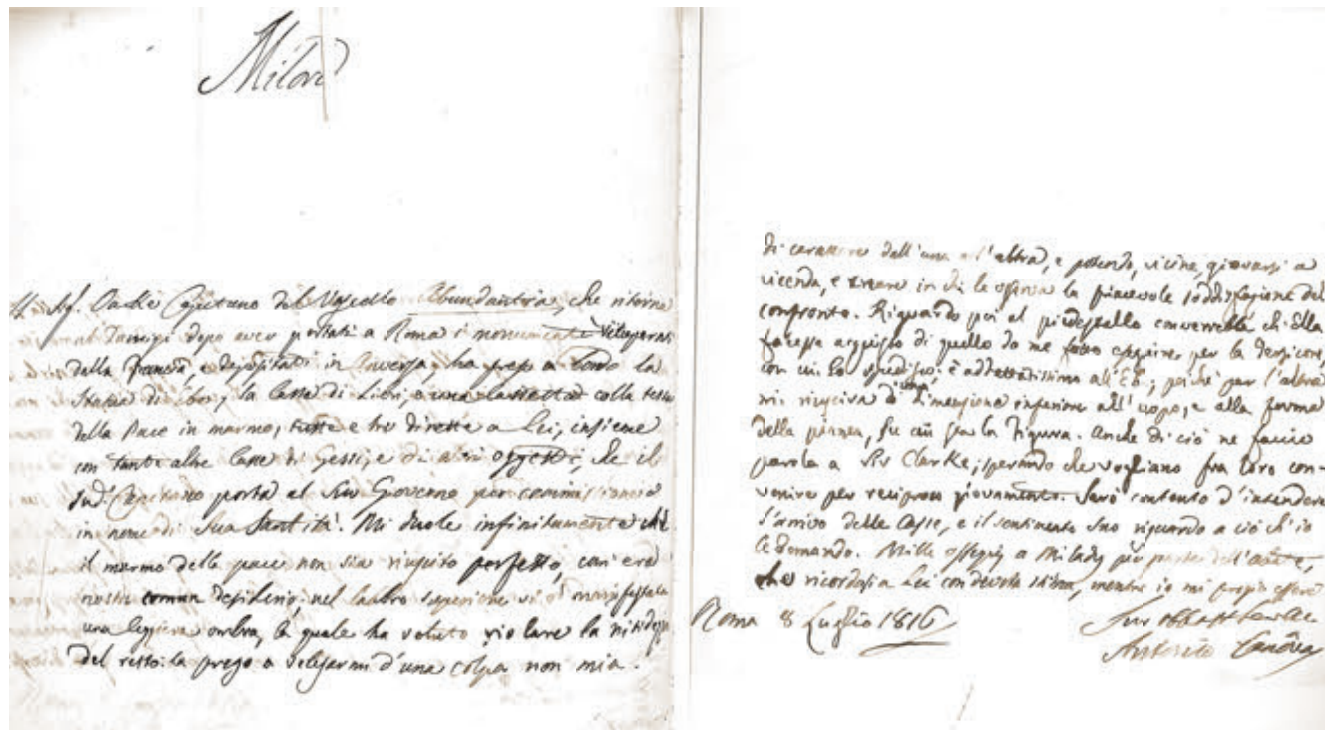 Milord
Il Sig. Capitano del Vascello Abundantia, che ritorna
dopo aver portati a Roma i monumenti
dalla Francia, e depositati in Anversa, ha preso a bordo la
Statua di Ebe, la Cassa di Libri, e una cassetta colla testa
della Pace in marmo, tutte e tre dirette a Lei, insieme
con tante altre Casse di Gessi, e di altri oggetti, che il
sud. Capitano porta al Suo Governo per commissione
in nome di Sua Santità. Mi duole infinitamente che
il marmo della pace non sia riuscito perfetto, com'era
nostro comun desiderio; nel labbro superiore si è manifestata
una leggiera ombra, la quale ha voluto violare la nitidezza
del resto: la prego a d'una colpa non mia.
di carattere dall'una all'altra, e potendo, vicine, giovarsi a
vicenda, e trarre in chi le osserva la piacevole soddisfazione del
confronto. Riguardo poi al piedestallo converrebbe ch'Ella
facesse acquisto di quello da me fatto eseguire per la
con cui Lo spedisco; è adattatissimo all'Ebe; poichè per l'altra
mi riusciva di dimensione inferiore all'uopo, e alla forma
della pianta, su cui sta la Figura. Anche di ciò ne faccio
parola a Sir Clarke; sperando che vogliano fra loro con-
venire per reciproco giovamento. Sarò contento d'intendere
l'arrivo delle Casse, e il sentimento suo riguardo a ciò ch'io
le domando. Mille ossequj a Milady per parte dell'abate,
che ricordasi a Lei con devota stima, mentre io mi pregio essere
Roma 8 Luglio 1816
Suo
Antonio Canova